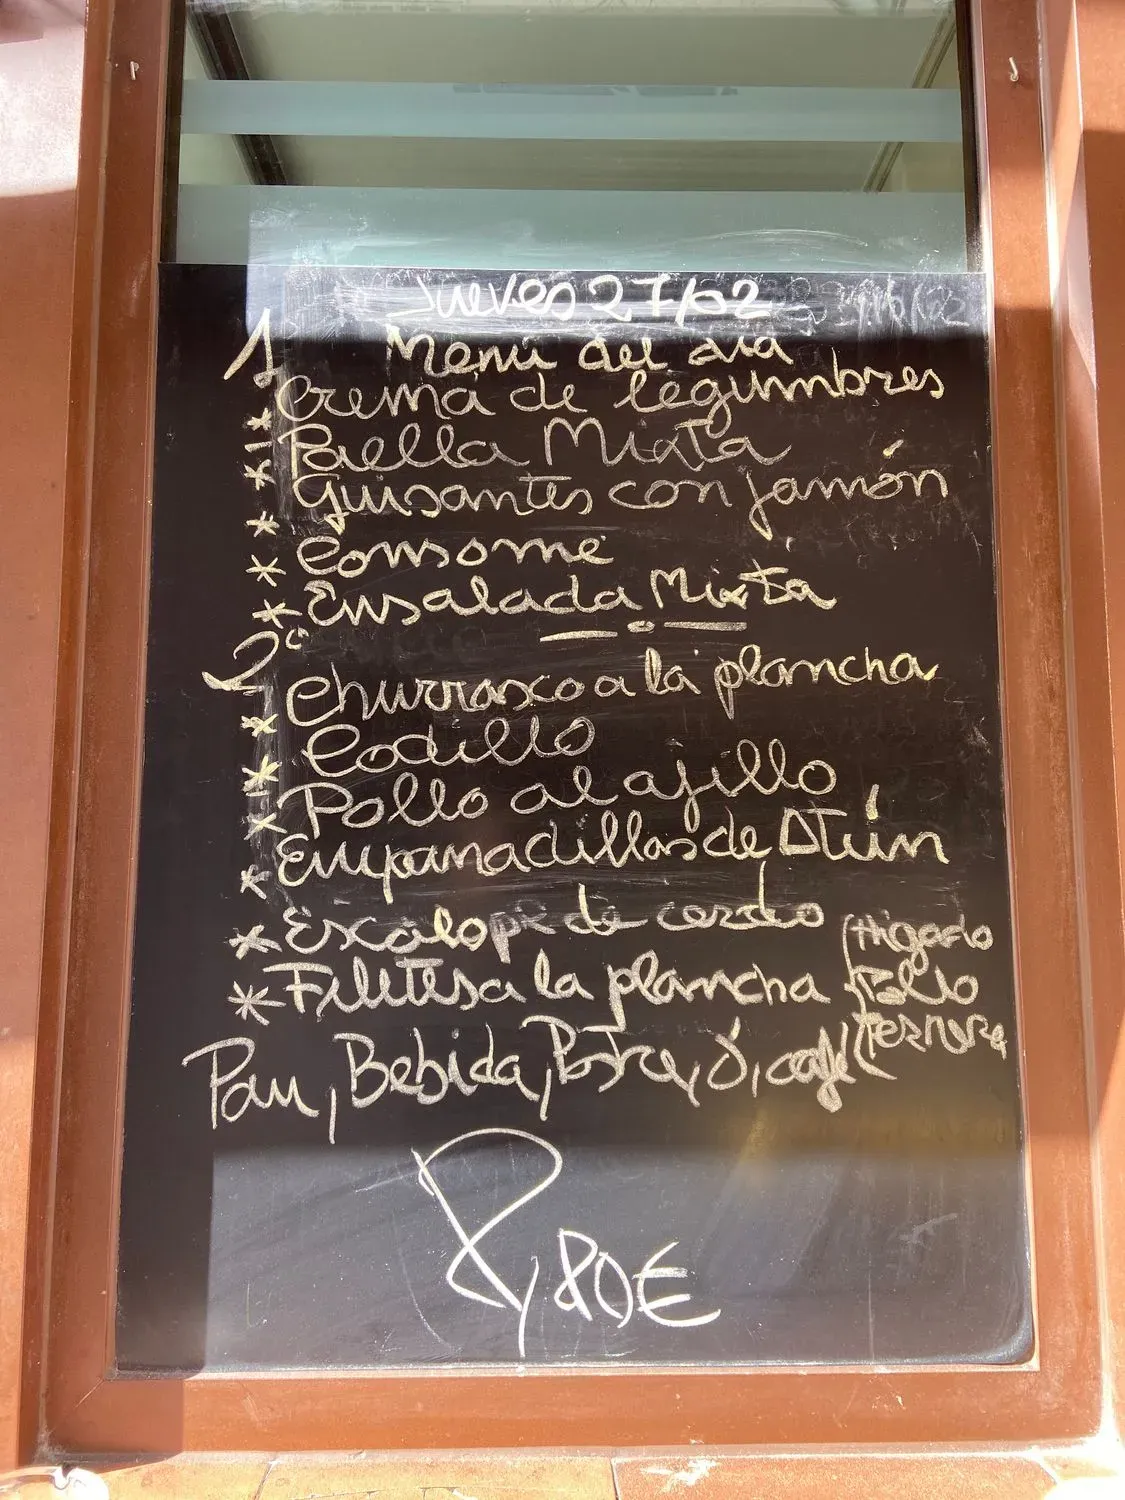 Jueves 27/02
1º Menú del día
* Crema de legumbres
* Paella Mixta
* Guisantes con jamón
* Consome
* Ensalada Mixta
2º
* Churrasco a la plancha
* Codillo
* Pollo al ajillo
* Empanadillas de Atún
* Escalope de cerdo
* Filetes a la plancha (Higado
Pollo
Ternera
Pan, Bebida, Postre, ó, café